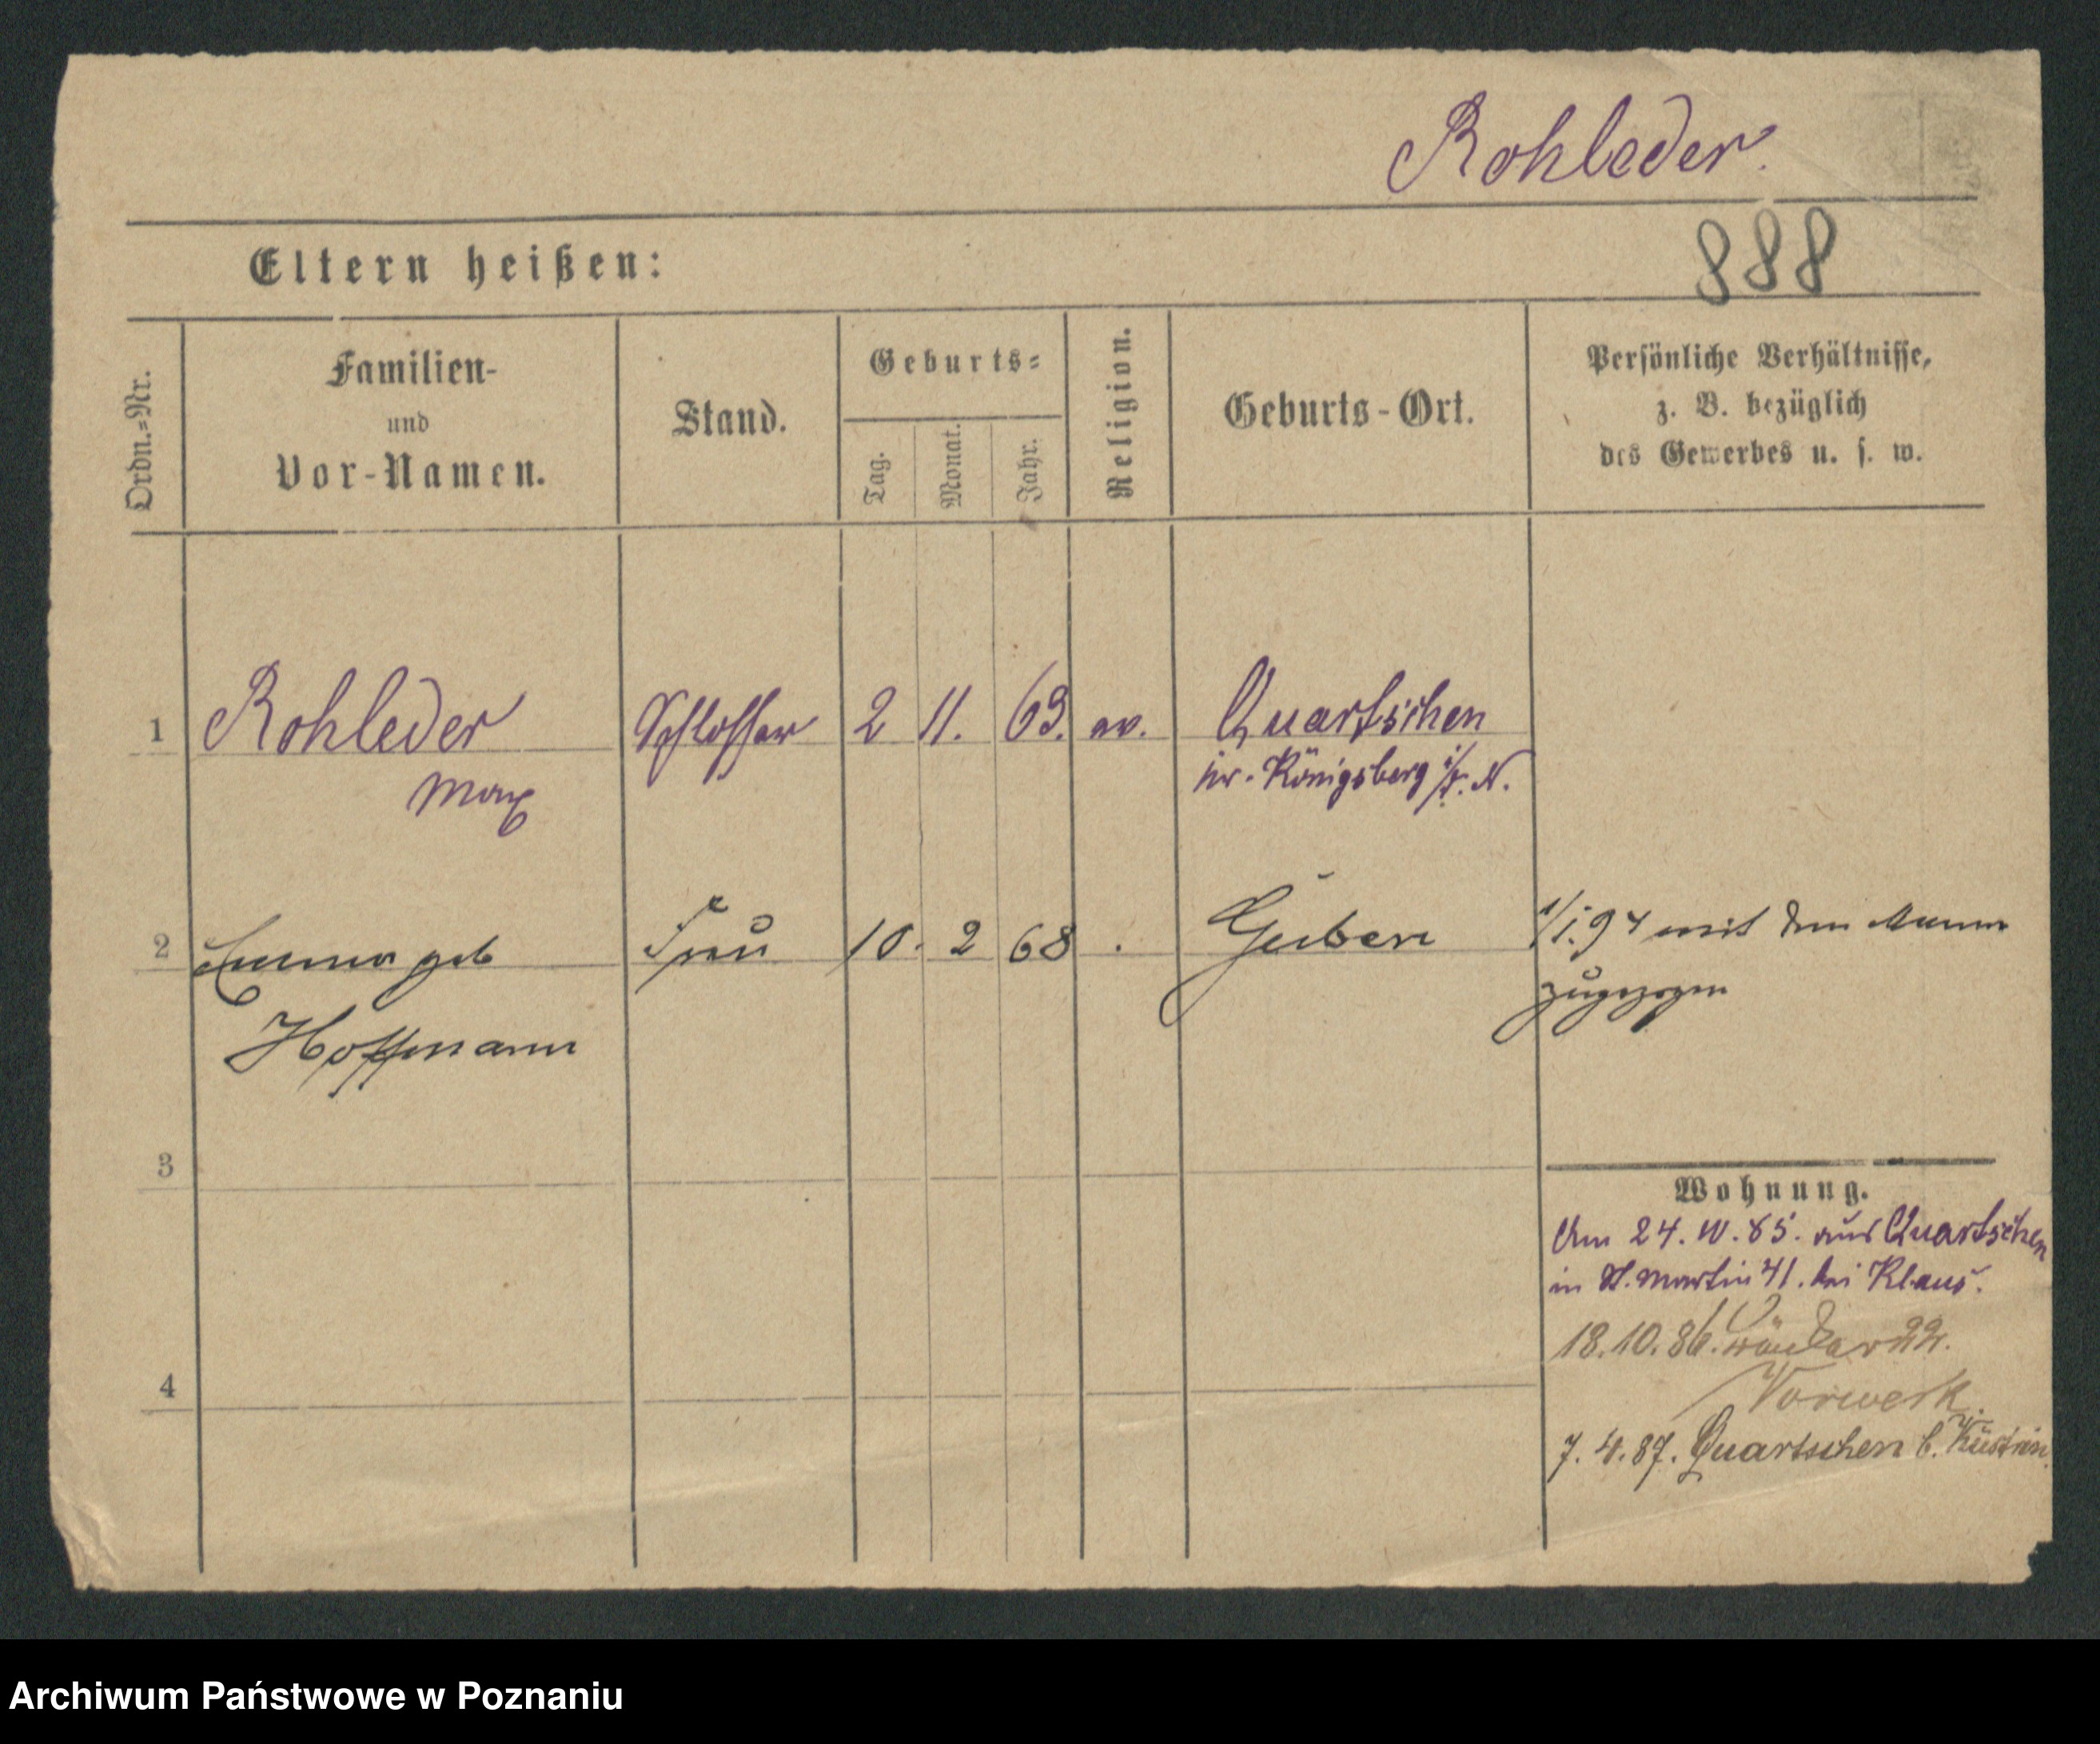 Rohleder.
888
Eltern heißen:
Ordn.-Nr.
Familien-
und
Vor-Namen.
Stand.
Geburts-
Tag.
Monat.
Jahr.
Religion.
Geburts-Ort.
Persönliche Verhältnisse,
z. B. bezüglich
des Gewerbes u. s. w.
1 Rohleder Schlosser 2 11. 63. ev. Quartschen
Max
Königsberg i/ N.
2 Emma geb Frau 10. 2 68 . Guben 1/1.94 mit dem Manne
Hoffmann
zugezogen
3
4
Wohnung.
Am 24. 85. aus Quartschen
in St. Martin 41. bei Klaus.
18.10.86. 22.
Vorwerk.
7.4.87. Quartschen b. Küstrin.
Archiwum Państwowe w Poznaniu